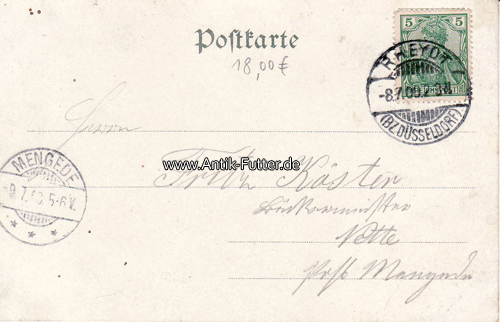 Postkarte
18,00€
5
RHEYDT
-8.7.00.2-3N.
(BZ. DÜSSELDORF)
Herrn
MENGEDE
9.7.00.5-6V.
www.Antik-Futter.de
Fritz Kösten
Bäckermeister
Nette
Post Mengede